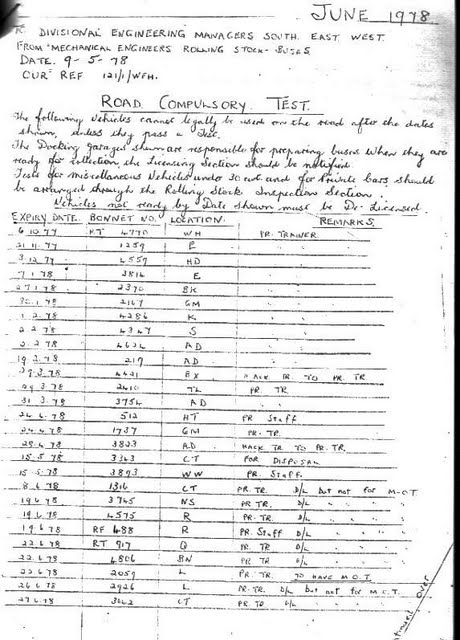 JUNE 1978
DIVISIONAL ENGINEERING MANAGERS SOUTH. EAST WEST.
FROM MECHANICAL ENGINEERS ROLLING STOCK - BUSES
DATE. 9-5-78
OUR REF 121/1/WFH.
ROAD COMPULSORY TEST.
The following vehicles cannot legally be used on the road after the dates
shown, unless they pass a Tec.
The Docking garages shown are responsible for preparing buses. When they are
ready for collection, the Licensing Section should be notified.
Tests for miscellaneous Vehicles under 30 cwt. and for Private Cars, should
be arranged through the Rolling Stock Inspection Section.
Vehicles not ready by Date shown must be De-Licensed.
EXPIRY DATE. BONNET NO. LOCATION. REMARKS.
6.10.77 RT 4770 WH PR. TRAINER.
21.11.77 1259
3.12.77 4559 HD
7.1.78 3814 E
27.1.78 2370 BK
2147 GM
1.2.78 4286 K
2.2.78 4347 S
4634 AD
219 AD
4421 BX HACK TR TO PR TR
29.3.78 2410 TL PR. TR
31.3.78 3754 AD
24.4.78 512 HT PR Staff
24.4.78 1737 GM PR. TR.
25.4.78 3823 AD HACK TR TO PR. TR.
15.5.78 3343 CT FOR DISPOSAL
15.5.78 3893 WW PR. Staff.
8.6.78 1316 CT PR. TR. D/L but not for M.O.T
19.6.78 3745 NS PR TR. D/L
19.6.78 4575 R PR. TR. D/L
19.6.78 RF 488 R PR. Staff D/L
22.6.78 RT 917 Q PR. TR D/L
22.6.78 4806 BN PR TR D/L
22.6.78 2059 L PR. TR. TO HAVE M.O.T.
26.6.78 2926 L PR. TR. D/L but not for M.O.T.
27.6.78 3242 CT PR. TR D/L
over